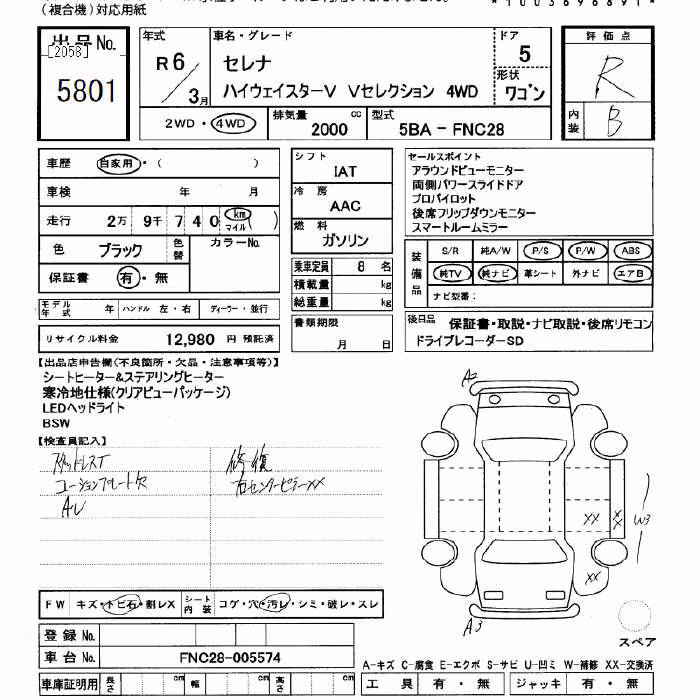 (複合機)対応用紙
出品No.
[2058]
5801
年式
R6/3月
車名・グレード
セレナ
ハイウェイスターV Vセレクション 4WD
ドア
5
形状
ワゴン
評価点
R
内装
B
2WD・4WD
排気量
2000 cc
型式
5BA - FNC28
車歴 自家用・( )
車検 年 月
走行 2万 9千 7 4 0 km マイル
色 ブラック 色替 カラーNo.
保証書 有・無
シフト
IAT
冷房
AAC
燃料
ガソリン
乗車定員 8 名
積載量 kg
総重量 kg
書類期限
月 日
セールスポイント
アラウンドビューモニター
両側パワースライドドア
プロパイロット
後席フリップダウンモニター
スマートルームミラー
装備品
S/R 純A/W P/S P/W ABS
純TV 純ナビ 革シート 外ナビ エアB
ナビ型番:
モデル年式 年 ハンドル 左・右 ディーラー・並行
リサイクル料金 12,980 円 預託済
後日品 保証書・取説・ナビ取説・後席リモコン
ドライブレコーダーSD
【出品店申告欄(不良箇所・欠品・注意事項等)】
シートヒーター&ステアリングヒーター
寒冷地仕様(クリアビューパッケージ)
LEDヘッドライト
BSW
【検査員記入】
スタッドレスT
コーションプレート欠
AU
修復
右センターピラーXX
A2
XX
XX
W3
XX
A3
スペア
FW キズ・トビ石・割レX
シート内装 コゲ・穴・汚レ・シミ・破レ・スレ
登録No.
車台No. FNC28-005574
車庫証明用 長さ cm 幅 cm 高さ cm
A-キズ C-腐食 E-エクボ S-サビ U-凹ミ W-補修 XX-交換済
工具 有・無 ジャッキ 有・無